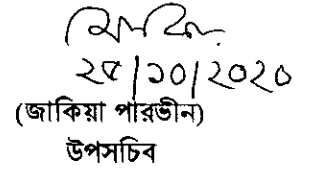 ২৫/১০/২০২০
(জাকিয়া পারভীন)
উপসচিব